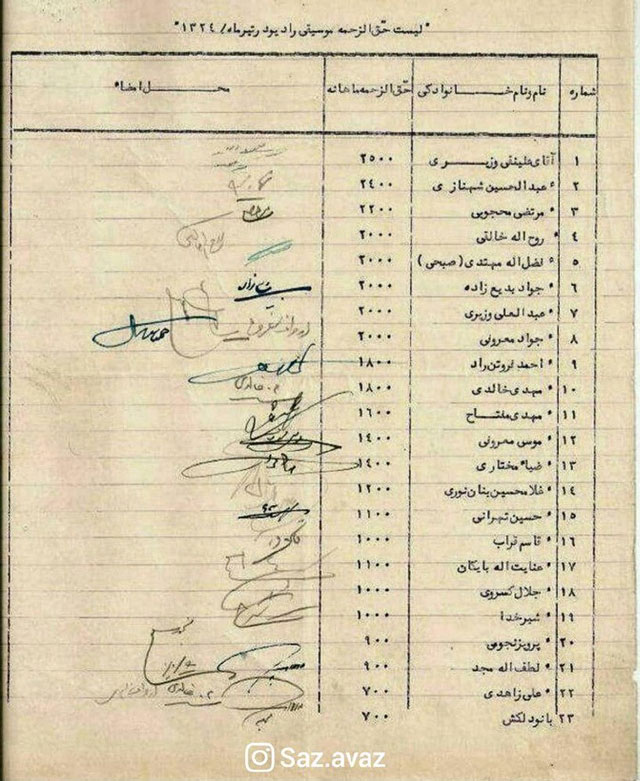 "لیست حقّ الزحمه موسیقی رادیو در تیرماه/ ۱۳۲۴"
شماره نام و نام خانوادگی حقّ الزحمه ماهانه محل امضاء
۱ آقای علینقی وزیری ۲۵۰۰
۲ " عبدالحسین شهنازی ۲۴۰۰
۳ " مرتضی محجوبی ۲۲۰۰
۴ " روح اله خالقی ۲۰۰۰
۵ " فضل اله مهتدی (صبحی) ۲۰۰۰
۶ " جواد بدیع زاده ۲۰۰۰
۷ " عبدالعلی وزیری ۲۰۰۰
۸ " جواد معروفی ۲۰۰۰
۹ " احمد فروتن راد ۱۸۰۰
۱۰ " مهدی خالدی ۱۸۰۰
۱۱ " مهدی مفتاح ۱۶۰۰
۱۲ " موسی معروفی ۱۴۰۰
۱۳ " ضیاء مختاری ۱۴۰۰
۱۴ " غلامحسین بنان نوری ۱۲۰۰
۱۵ " حسین تهرانی ۱۱۰۰
۱۶ " قاسم قراب ۱۰۰۰
۱۷ " عنایت اله بایکان ۱۱۰۰
۱۸ " جلال کسروی ۱۰۰۰
۱۹ " شیرخدا ۱۰۰۰
۲۰ " پرویز نجومی ۹۰۰
۲۱ " لطف اله مجد ۹۰۰
۲۲ " علی زاهدی ۷۰۰
۲۳ بانو دلکش ۷۰۰
Saz.avaz